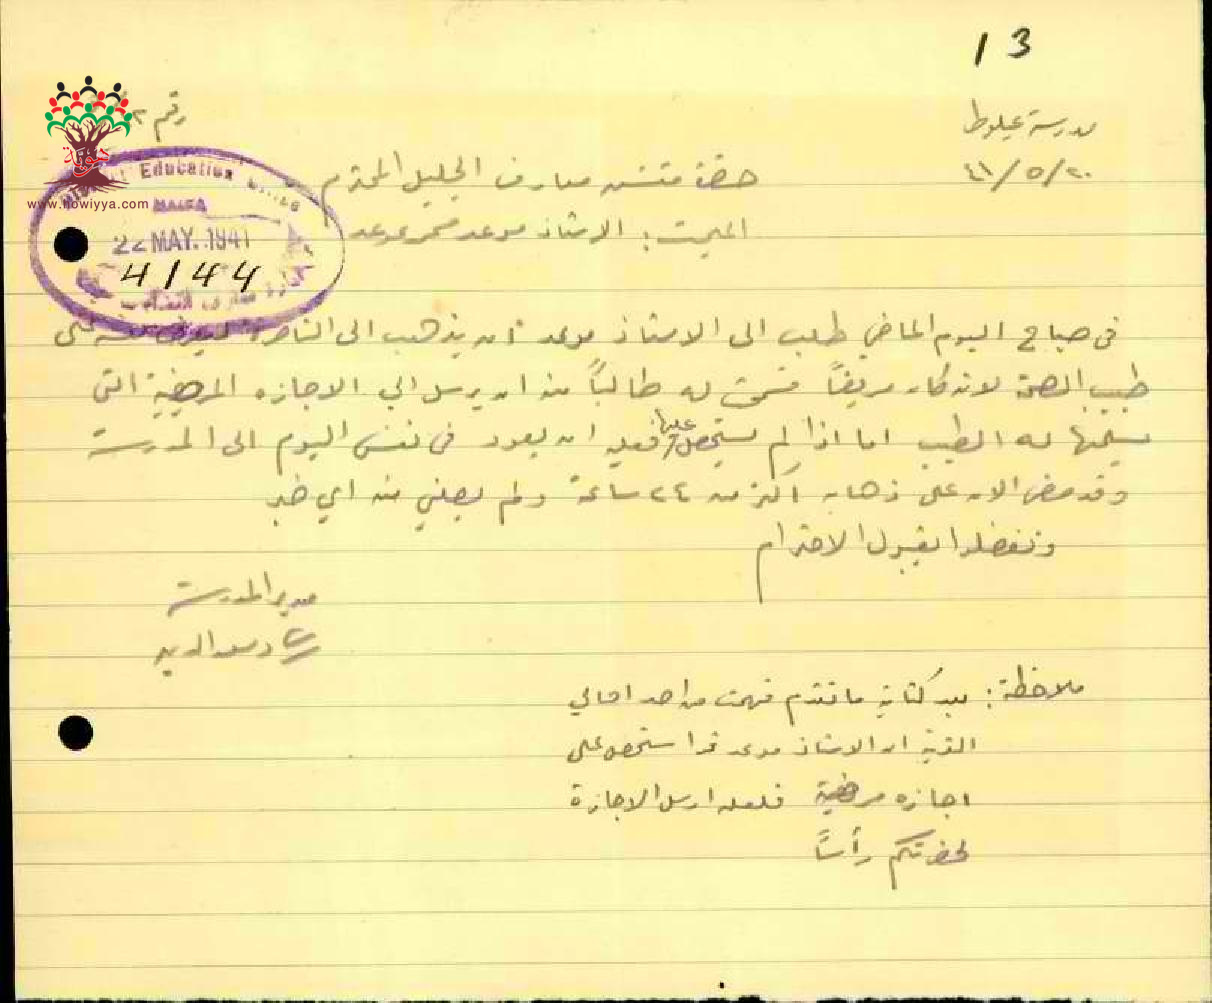 13
مدرسة عيلوط
رقم
٢٠/٥/٤١
حضرة مفتش معارف الجليل المحترم
المبحث: الاستاذ موعد محمد موعد
District Education Office
HAIFA
22 MAY. 1941
4/44
هوية
www.howiyya.com
في صباح اليوم الماضي طلب الي الاستاذ موعد ان يذهب الى الناصرة ليعرض نفسه على
طبيب الصحة لانه كان مريضاً فسمحت له طالباً منه ان يرسل الي الاجازه المرضية التي
سيمنحها له الطبيب اما اذا لم يستحصل عليها فعليه ان يعود في نفس اليوم الى المدرسة
وقد مضى الان على ذهابه اكثر من ٢٤ ساعة ولم يصلني منه اي خبر
وتفضلوا بقبول الاحترام
مدير المدرسة
سعد الدين
ملاحظة: بعد كتابة ما تقدم فهمت من احد اهالي
القرية ان الاستاذ موعد قد استحصل على
اجازه مرضية فلعله ارسل الاجازة
لحضرتكم رأساً